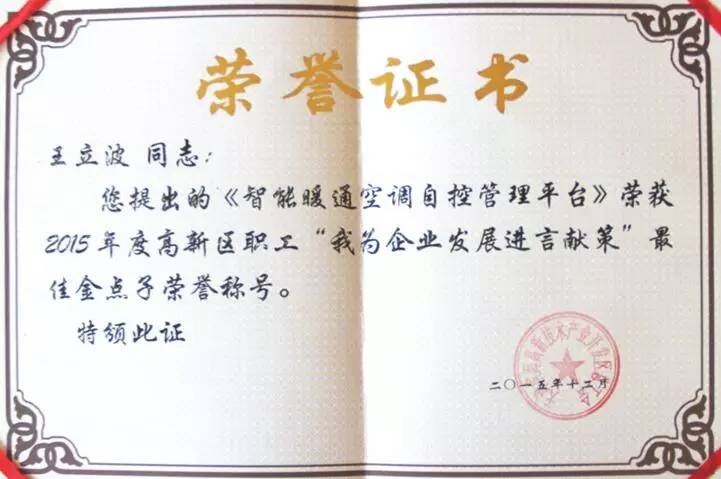 荣誉证书
王立波 同志：
您提出的《智能暖通空调自控管理平台》荣获
2015年度高新区职工“我为企业发展进言献策”最
佳金点子荣誉称号。
特颁此证
二〇一五年十二月